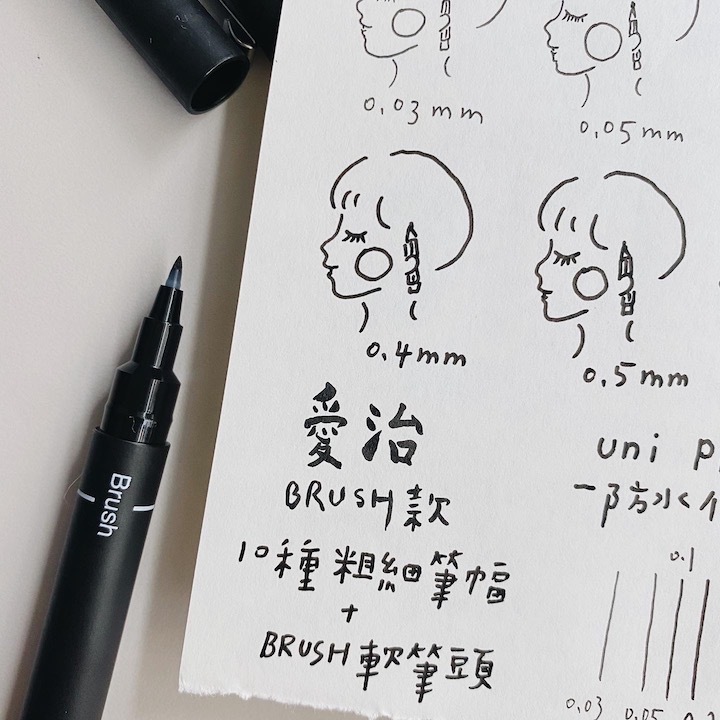 0.03mm
0.05mm
0.4mm
0.5mm
愛治
BRUSH款
10種粗細筆幅
+
BRUSH軟筆頭
uni
防水
0.1
0.03
0.05
Brush